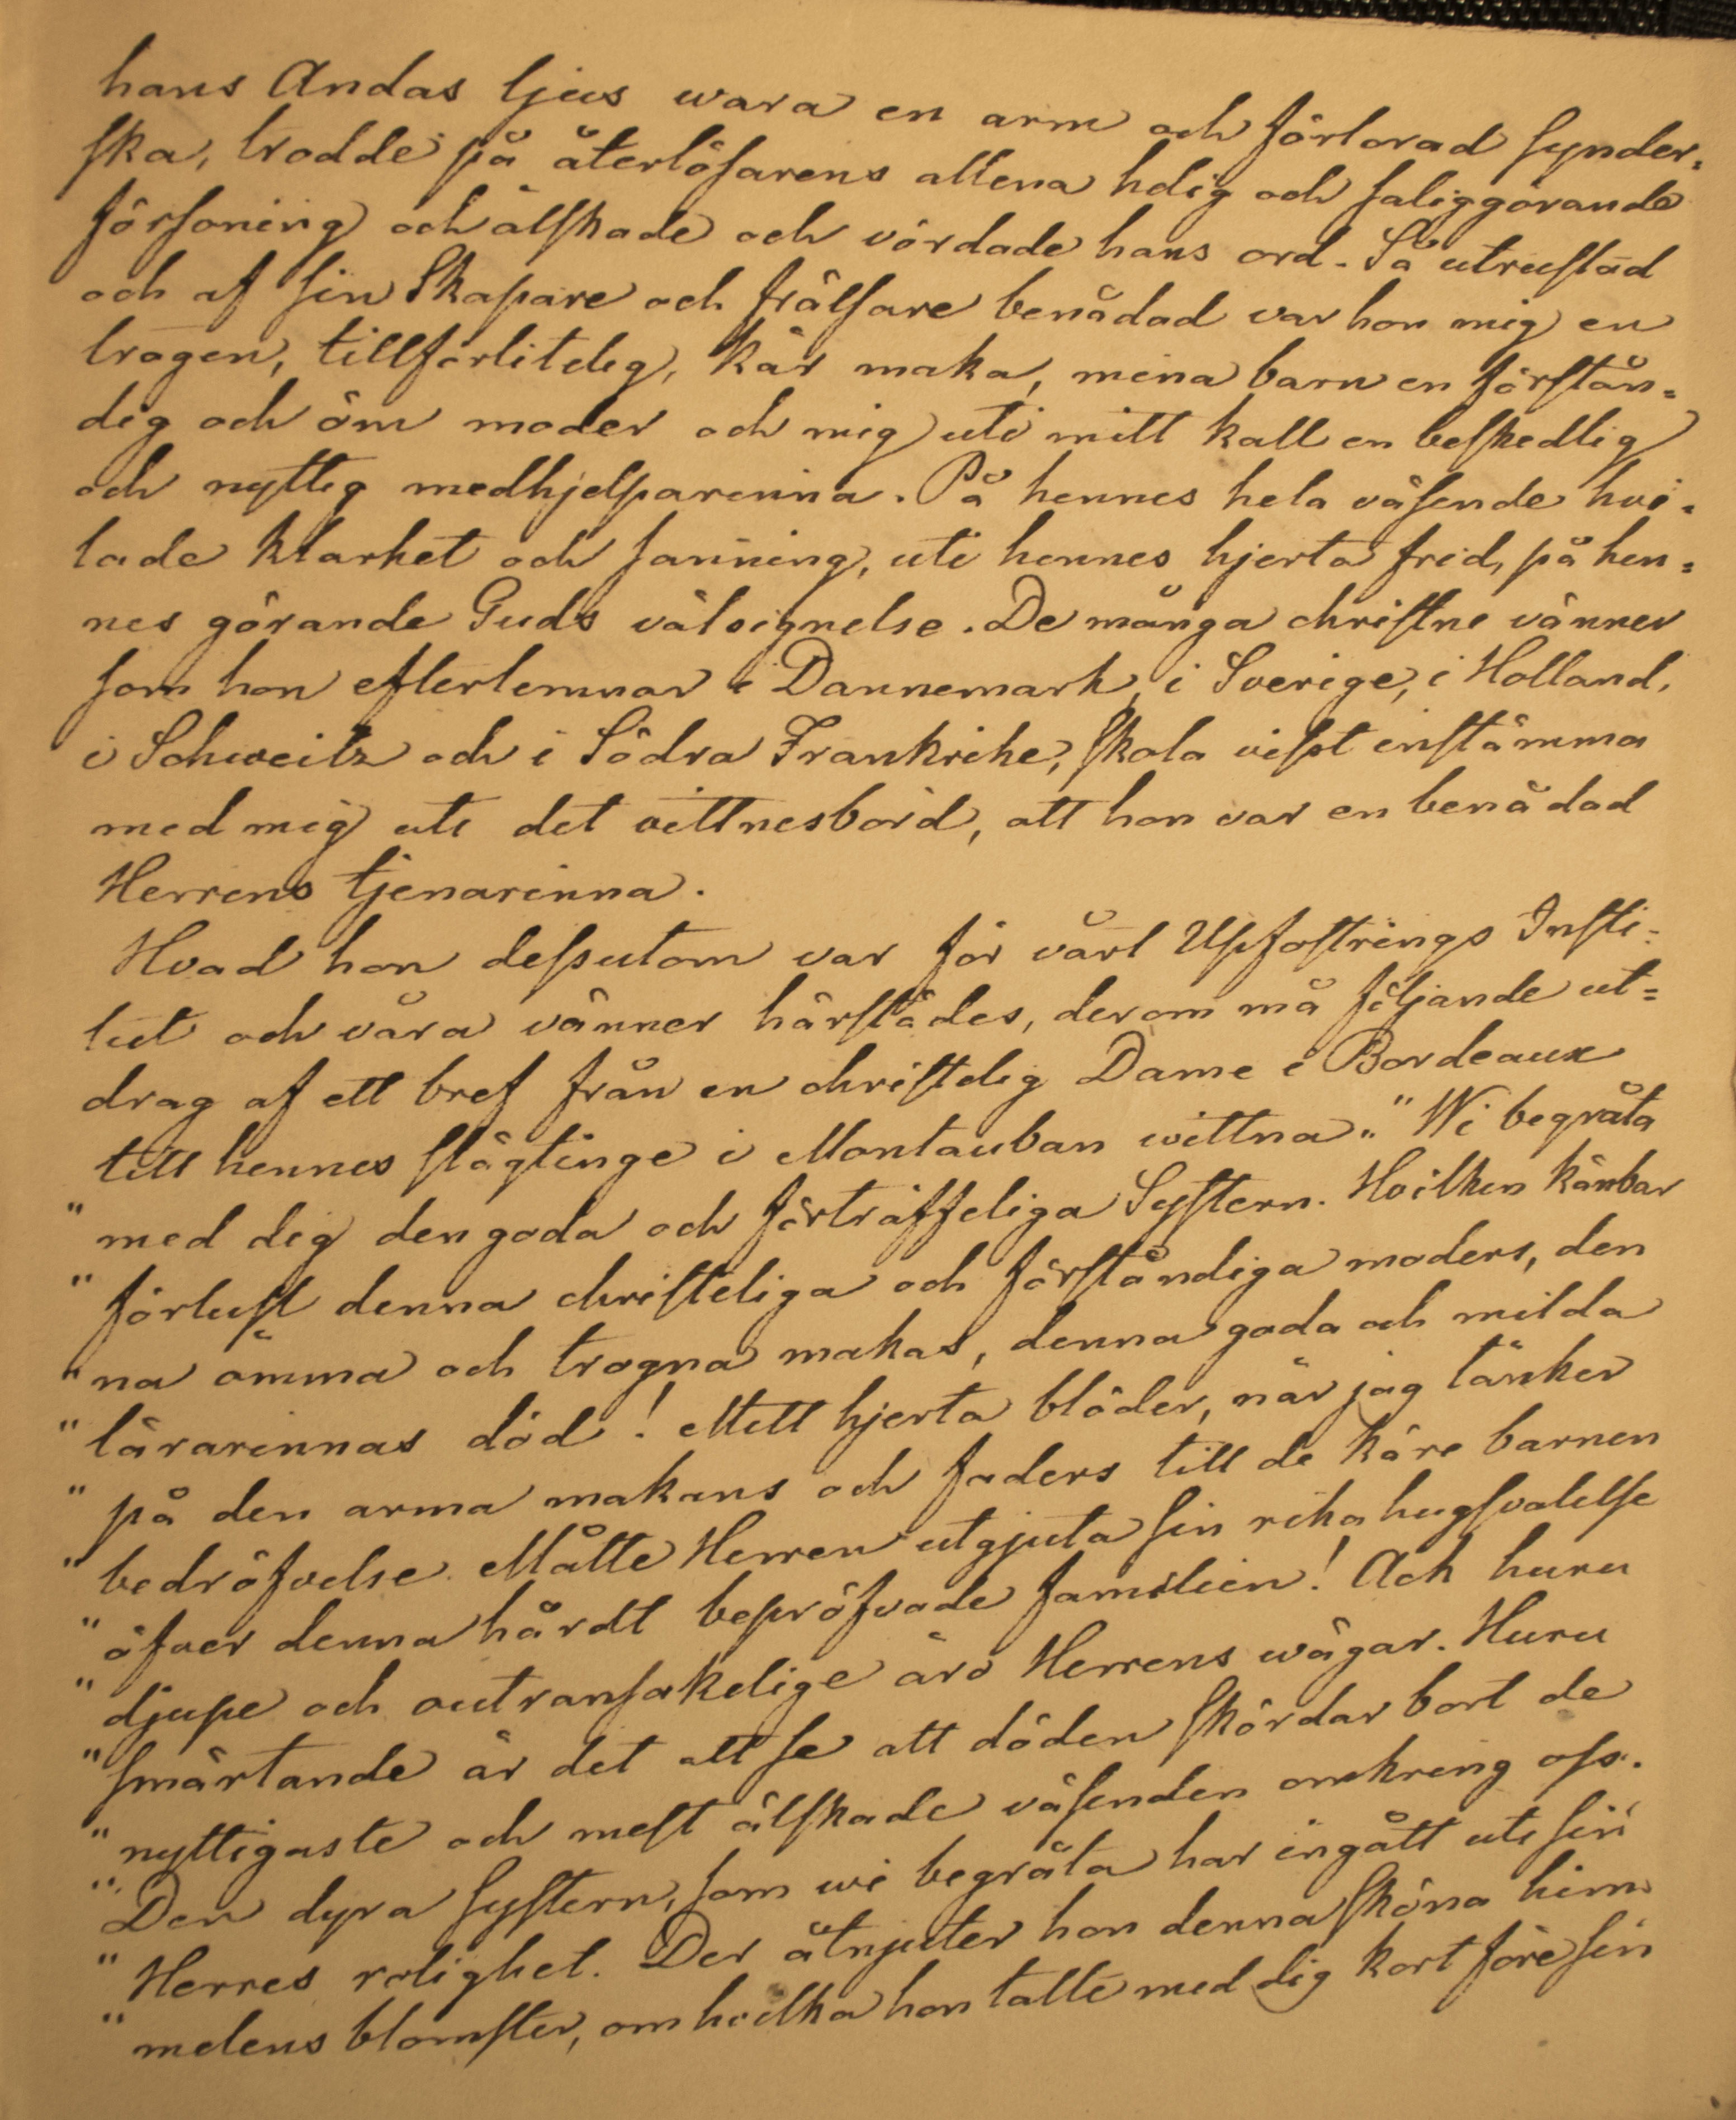 hans Andas ljus wara en arm och förlorad synder=
ska, trodde på återlösarens allena helig och saliggörande
försoning och älskade och vördade hans ord. Så utrustad
och af sin Skapare och frälsare benådad var hon mig en
trogen, tillförlitelig, kär maka, mina barn en förstån=
dig och öm moder och mig uti mitt kall en beskedlig
och nyttig medhjelparinna. På hennes hela väsende hvi=
lade klarhet och sanning, uti hennes hjerta frid, på hen=
nes görande Guds välsignelse. De många christne vänner
som hon efterlemnar i Dannemark, i Sverige, i Holland,
i Schweitz och i Södra Frankrike, skola visst instämma
med mig uti det vittnesbörd, att hon var en benådad
Herrens tjenarinna.
Hvad hon dessutom var för vårt Upfostrings Insti=
tut och våra vänner härstädes, derom må följande ut=
drag af ett bref från en christelig Dame i Bordeaux
till hennes slägtinge i Montauban wittna: " Wi begråta
" med dig den goda och förträffeliga Systern. Hvilken känbar
" förlust denna christeliga och förståndiga moders, den
" na ömma och trogna makas, denna goda och milda
" lärarinnas död! Mitt hjerta blöder, när jag tänker
" på den arma makans och faders till de käre barnen
" bedröfvelse. Måtte Herren utgjuta sin rika hugsvalelse
" öfver denna hårdt bepröfvade familien! Ack huru
" djupe och outransakelige äro Herrens wägar. Huru
" smärtande är det att se att döden skördar bort de
" nyttigaste och mest älskade väsenden omkring oss.
" Den dyra systern, som wi begråta har ingått uti sin
" Herres rolighet. Der åtnjuter hon denna sköna him
" melens blomster, om hvilka hon talte med dig kort före sin